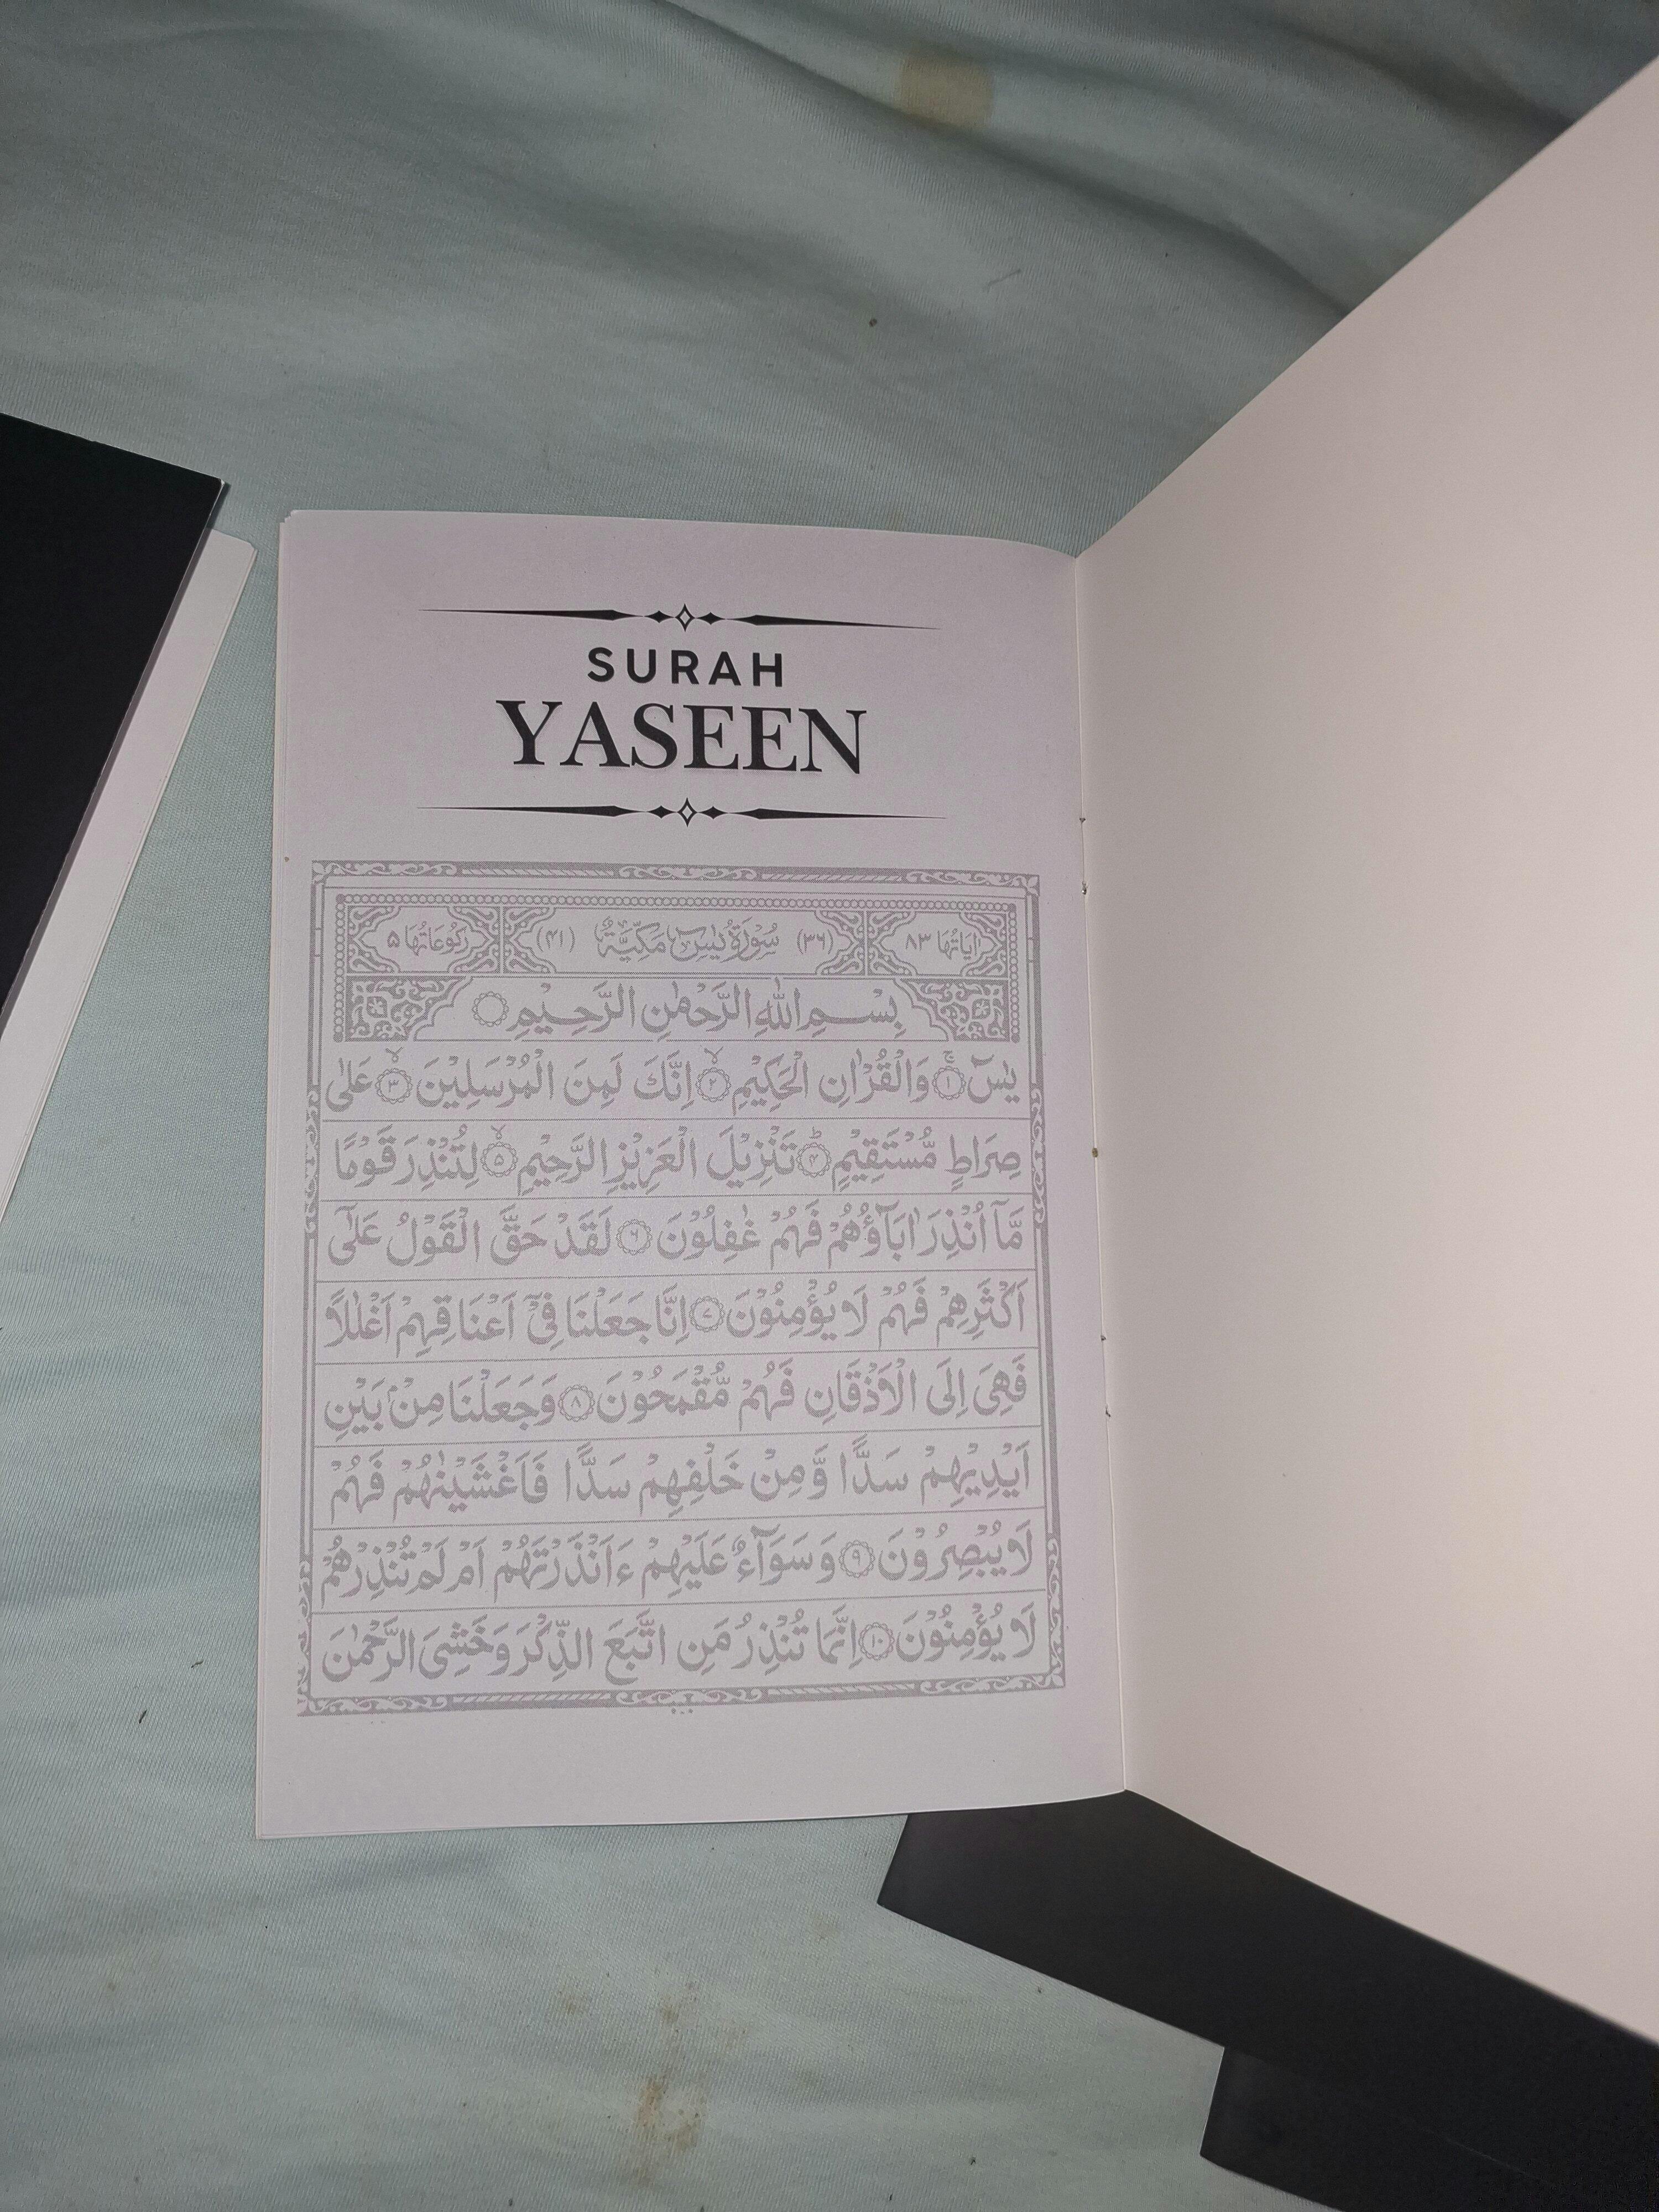 SURAH
YASEEN
اٰيَاتُهَا ٨٣ (٣٦) سُوْرَةُ يٰسٓ مَكِّيَّةٌ (٤١) رُكُوْعَاتُهَا ٥
بِسْمِ اللّٰهِ الرَّحْمٰنِ الرَّحِيْمِ
يٰسٓ ۚ ﴿١﴾ وَالْقُرْاٰنِ الْحَكِيْمِ ۙ ﴿٢﴾ اِنَّكَ لَمِنَ الْمُرْسَلِيْنَ ۙ ﴿٣﴾ عَلٰى
صِرَاطٍ مُّسْتَقِيْمٍ ؕ ﴿۴﴾ تَنْزِيْلَ الْعَزِيْزِ الرَّحِيْمِ ۙ ﴿۵﴾ لِتُنْذِرَ قَوْمًا
مَّآ اُنْذِرَ اٰبَآؤُهُمْ فَهُمْ غٰفِلُوْنَ ﴿۶﴾ لَقَدْ حَقَّ الْقَوْلُ عَلٰٓى
اَكْثَرِهِمْ فَهُمْ لَا يُؤْمِنُوْنَ ﴿۷﴾ اِنَّا جَعَلْنَا فِيْٓ اَعْنَاقِهِمْ اَغْلٰلًا
فَهِيَ اِلَى الْاَذْقَانِ فَهُمْ مُّقْمَحُوْنَ ﴿٨﴾ وَجَعَلْنَا مِنْۢ بَيْنِ
اَيْدِيْهِمْ سَدًّا وَّمِنْ خَلْفِهِمْ سَدًّا فَاَغْشَيْنٰهُمْ فَهُمْ
لَا يُبْصِرُوْنَ ﴿٩﴾ وَسَوَآءٌ عَلَيْهِمْ ءَاَنْذَرْتَهُمْ اَمْ لَمْ تُنْذِرْهُمْ
لَا يُؤْمِنُوْنَ ﴿١٠﴾ اِنَّمَا تُنْذِرُ مَنِ اتَّبَعَ الذِّكْرَ وَخَشِيَ الرَّحْمٰنَ